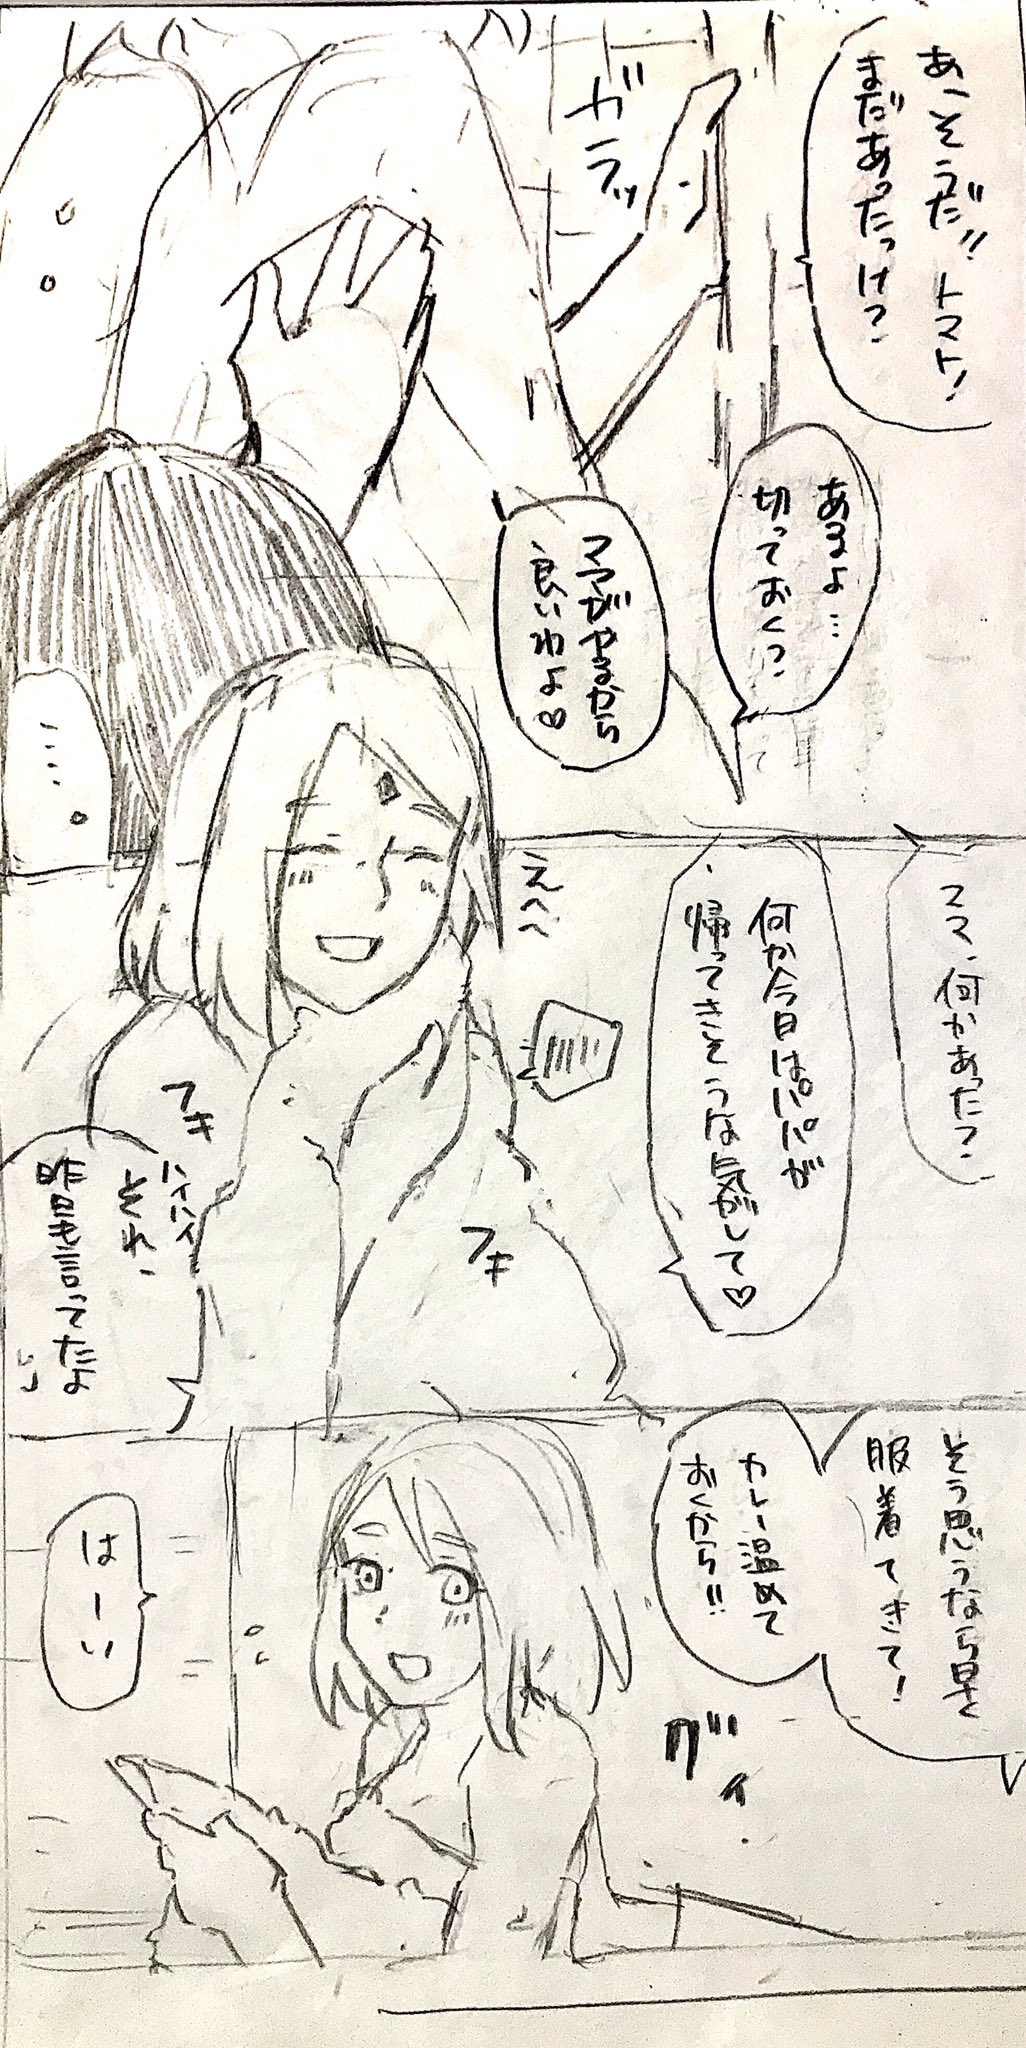 あっそうだ!! トマト!
まだあったっけ?
ガラッ
あるよ…
切っておく?
ママがやるから
良いわよ♡
…。
ママ、何かあった?
何か今日はパパが
帰ってきそうな気がして♡
えへへ
フキ
フキ
ハイハイ
それ、
昨日も言ってたよ
そう思うなら早く
服着てきて!
カレー温めて
おくから!!
グイ
はーい